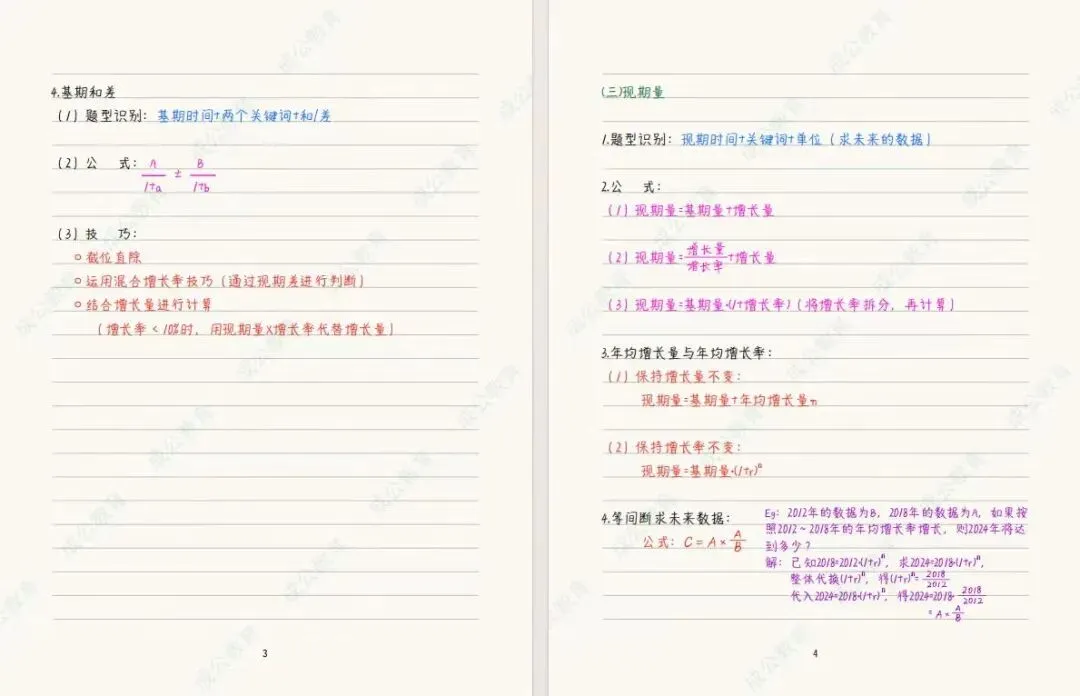 4.基期和差
(1)题型识别：基期时间+两个关键词+和/差
(2)公 式：A/1+a ± B/1+b
(3)技 巧：
○截位直除
○运用混合增长率技巧(通过现期差进行判断)
○结合增长量进行计算
(增长率<10%时，用现期量X增长率代替增长量)
3
(三)现期量
1.题型识别：现期时间+关键词+单位(求未来的数据)
2.公 式：
(1)现期量=基期量+增长量
(2)现期量=增长量/增长率+增长量
(3)现期量=基期量·(1+增长率)(将增长率拆分，再计算)
3.年均增长量与年均增长率：
(1)保持增长量不变：
现期量=基期量+年均增长量n
(2)保持增长率不变：
现期量=基期量·(1+r)ⁿ
4.等间断求未来数据：
公式：C=A×A/B
Eg：2012年的数据为B，2018年的数据为A，如果按
照2012~2018年的年均增长率增长，则2024年将达
到多少？
解：已知2018=2012·(1+r)ⁿ，求2024=2018·(1+r)ⁿ，
整体代换(1+r)ⁿ，得(1+r)ⁿ=2018/2012
代入2024=2018·(1+r)ⁿ，得2024=2018·2018/2012
=A×A/B
4
成公教育